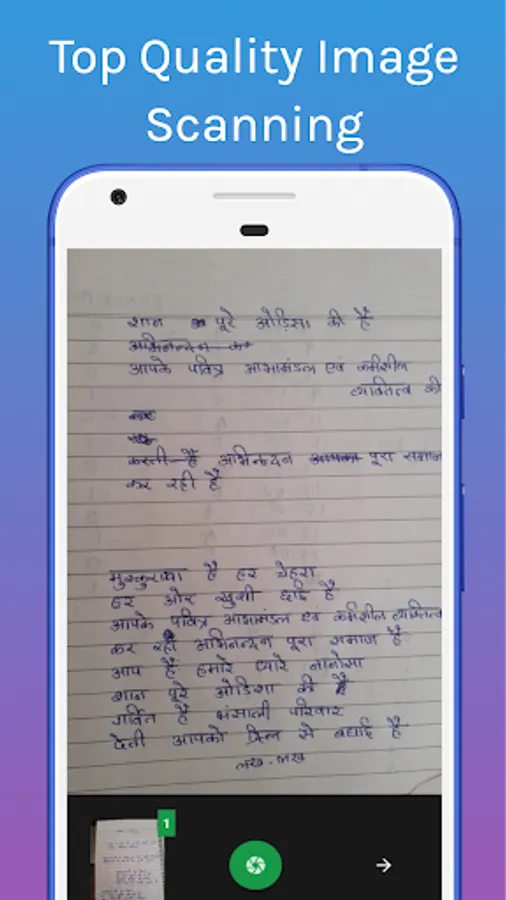 Top Quality Image
Scanning
शान पूरे ओड़िसा की है
अभिनन्दन का
आपके पवित्र आभामंडल एवं कर्मशील
व्यक्तित्व की
करती है अभिनन्दन आपका पूरा समाज
कर रही है
मुस्कुराता है हर चेहरा
हर ओर खुशी छाई है
आपके पवित्र आभामंडल एवं कर्मशील व्यक्तित्व
कर रही अभिनन्दन पूरा समाज है
आप है हमारे प्यारे नानोसा
शान पूरे ओडिशा की है
गर्वित है भंसाली परिवार
देती आपको दिल से बधाई है
लख-लख
1